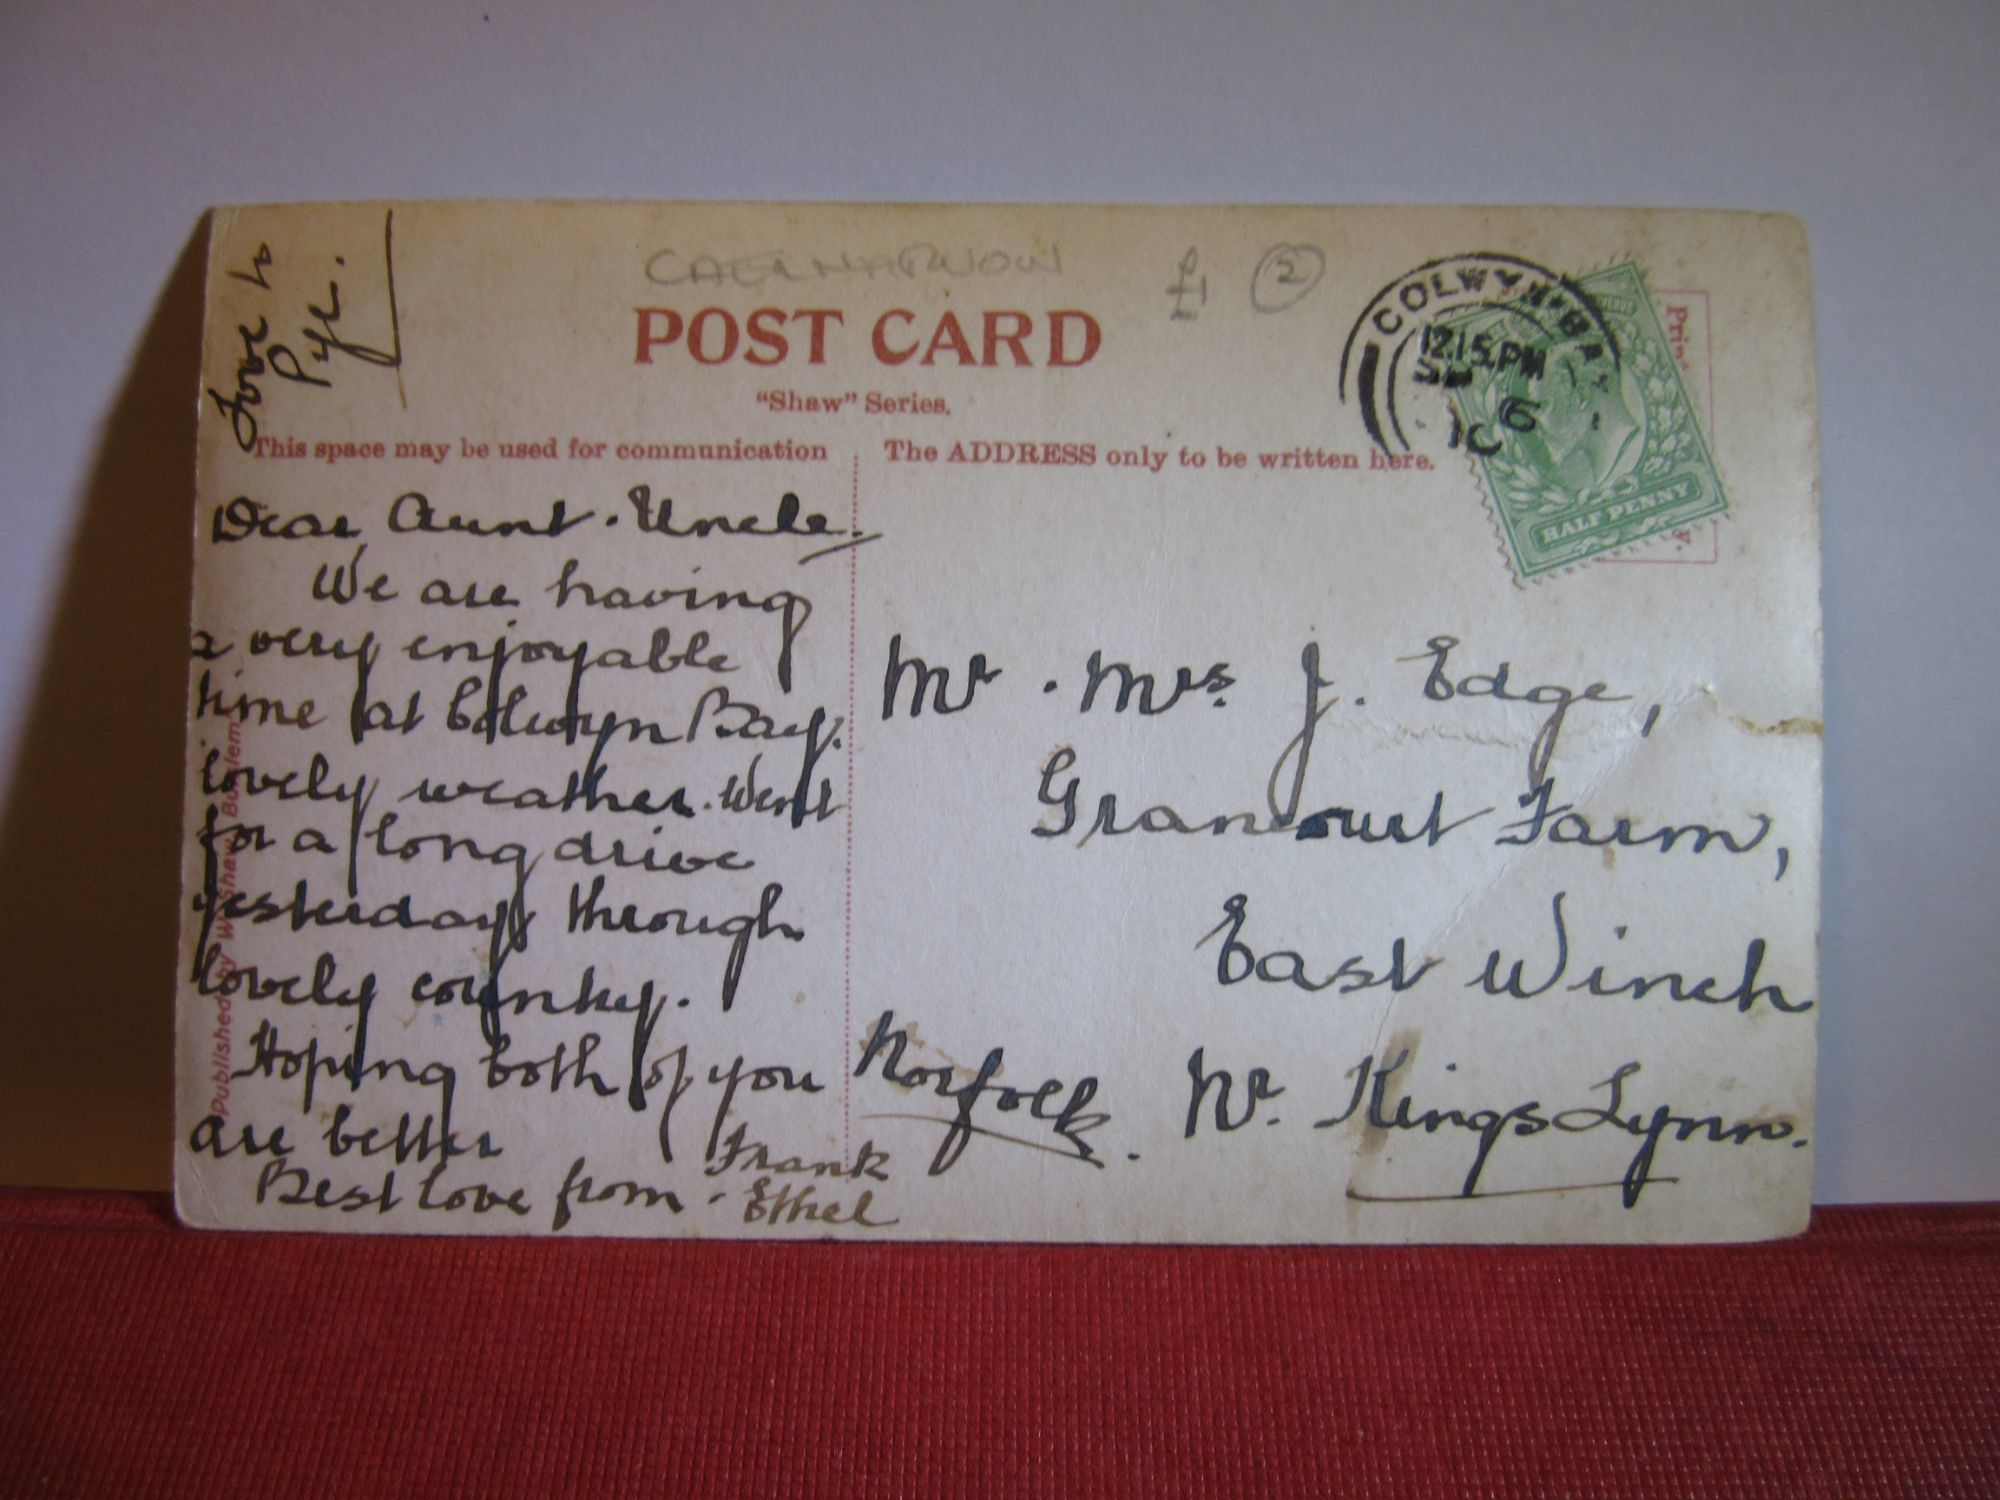 Love to
Pye.
CAERNARVON
£1
2
POST CARD
"Shaw" Series.
This space may be used for communication
The ADDRESS only to be written here.
COLWYN·BAY
12.15 PM
SP 6
10
HALF PENNY
Dear Aunt · Uncle.
We are having
a very enjoyable
time at Colwyn Bay.
lovely weather. Went
for a long drive
yesterday through
lovely country.
Hoping both of you
are better
Best love from · Frank
Ethel
Mr · Mrs. J. Edge,
Grancourt Farm,
East Winch
Nr. Kings Lynn.
Norfolk.
Published by W. Shaw, Burslem